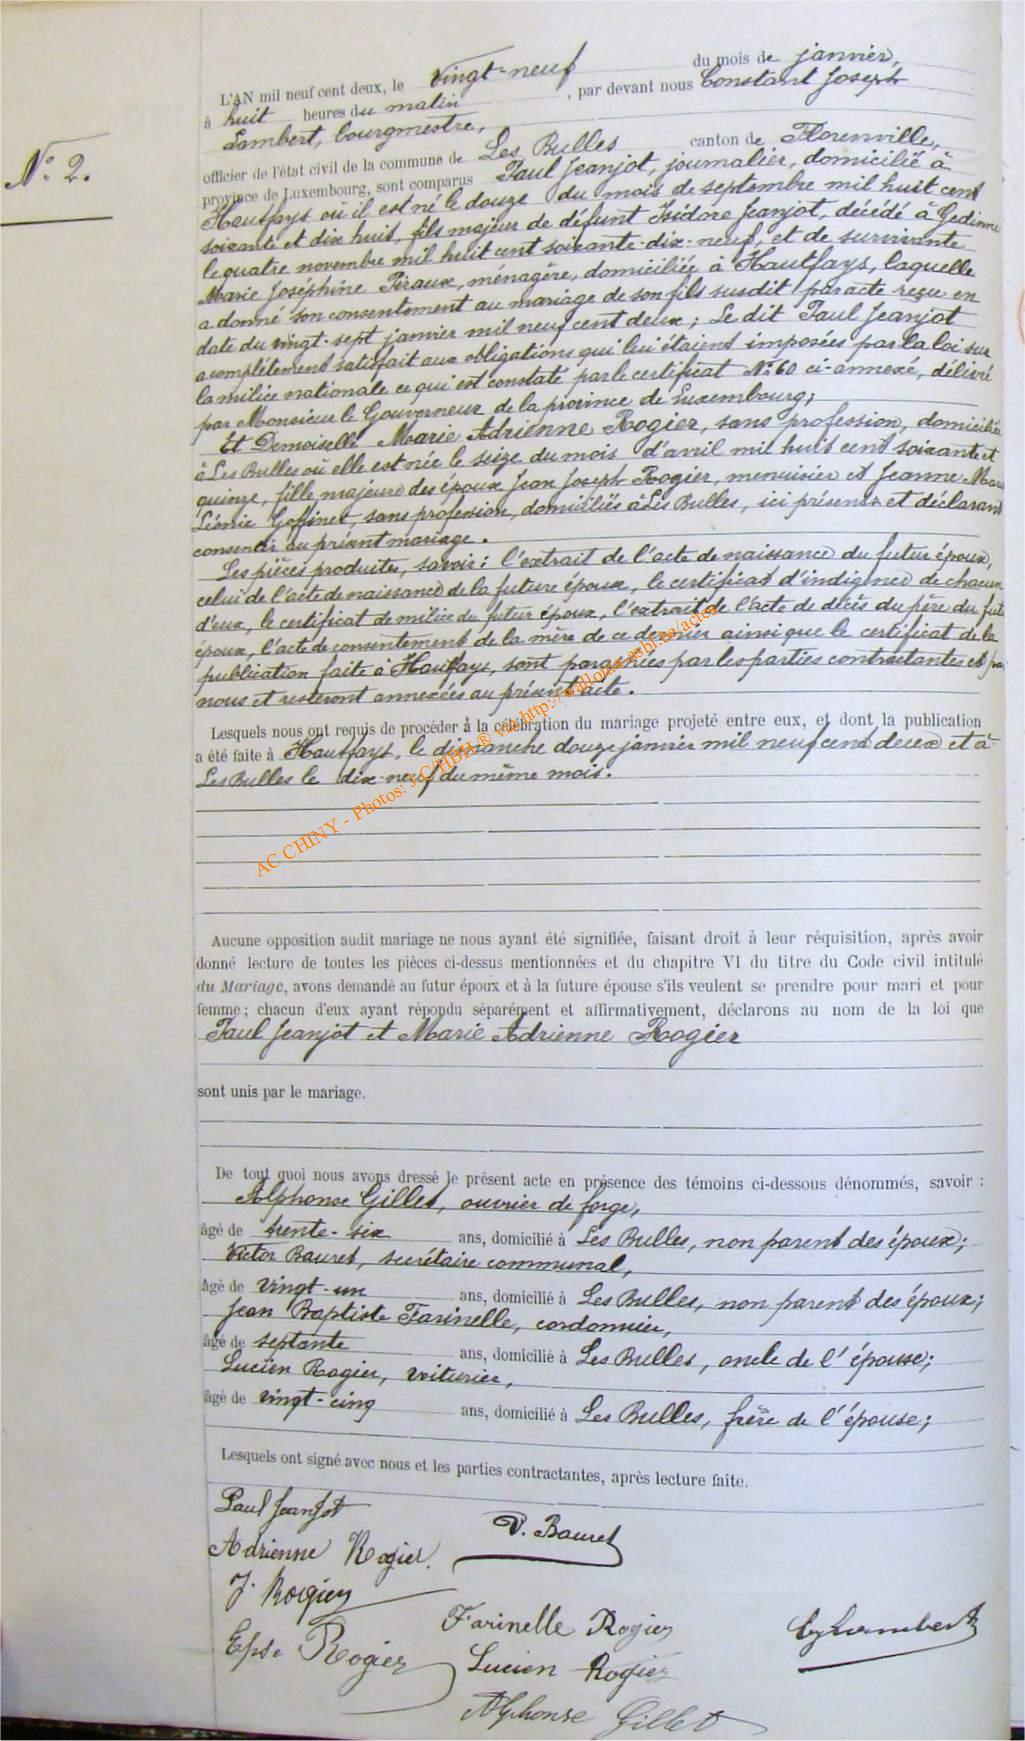 N° 2.
L'AN mil neuf cent deux, le vingt-neuf du mois de janvier,
à huit heures du matin, par devant nous Constant Joseph
Lambert, bourgmestre,
officier de l'état civil de la commune de Les Bulles canton de Florenville,
province de Luxembourg, sont comparus Paul Jeanjot, journalier, domicilié à
Hautfays où il est né le douze du mois de septembre mil huit cent
soixante et dix huit, fils majeur de défunt Isidore Jeanjot, décédé à Gedinne
le quatre novembre mil huit cent soixante-dix-neuf, et de survivante
Marie Joséphine Piraux, ménagère, domiciliée à Hautfays, laquelle
a donné son consentement au mariage de son fils susdit par acte reçu en
date du vingt-sept janvier mil neuf cent deux; Le dit Paul Jeanjot
a complètement satisfait aux obligations qui lui étaient imposées par la loi sur
la milice nationale ce qui est constaté par le certificat N° 60 ci-annexé, délivré
par Monsieur le Gouverneur de la province de Luxembourg;
Et Demoiselle Marie Adrienne Rogier, sans profession, domiciliée
à Les Bulles où elle est née le seize du mois d'avril mil huit cent soixante et
quinze, fille majeure des époux Jean Joseph Rogier, menuisier et Jeanne Marie
Léonie Goffinet, sans profession, domiciliés à Les Bulles, ici présents et déclarant
consentir au présent mariage.
Les pièces produites, savoir: l'extrait de l'acte de naissance du futur époux,
celui de l'acte de naissance de la future épouse, le certificat d'indigence de chacun
d'eux, le certificat de milice du futur époux, l'extrait de l'acte de décès du père du futur
époux, l'acte de consentement de la mère de ce dernier ainsi que le certificat de la
publication faite à Hautfays, sont paraphées par les parties contractantes et par
nous et resteront annexées au présent acte.
Lesquels nous ont requis de procéder à la célébration du mariage projeté entre eux, et dont la publication
a été faite à Hautfays, le dimanche douze janvier mil neuf cent deux et à
Les Bulles le dix-neuf du même mois.
AC CHINY - Photos: J.C/HBH® via http://wallonia-asbl.be/actes
Aucune opposition audit mariage ne nous ayant été signifiée, faisant droit à leur réquisition, après avoir
donné lecture de toutes les pièces ci-dessus mentionnées et du chapitre VI du titre du Code civil intitulé
du Mariage, avons demandé au futur époux et à la future épouse s'ils veulent se prendre pour mari et pour
femme; chacun d'eux ayant répondu séparément et affirmativement, déclarons au nom de la loi que
Paul Jeanjot et Marie Adrienne Rogier
sont unis par le mariage.
De tout quoi nous avons dressé le présent acte en présence des témoins ci-dessous dénommés, savoir:
Alphonse Gillet, ouvrier de forge,
âgé de trente-six ans, domicilié à Les Bulles, non parent des époux;
Victor Bauret, secrétaire communal,
âgé de vingt-un ans, domicilié à Les Bulles, non parent des époux;
Jean Baptiste Farinelle, cordonnier,
âgé de septante ans, domicilié à Les Bulles, oncle de l'épouse;
Lucien Rogier, voiturier,
âgé de vingt-cinq ans, domicilié à Les Bulles, frère de l'épouse;
Lesquels ont signé avec nous et les parties contractantes, après lecture faite.
Paul Jeanjot
V. Bauret
Adrienne Rogier.
J. Rogier
Farinelle Rogier
Lambert
Epse Rogier
Lucien Rogier
Alphonse Gillet